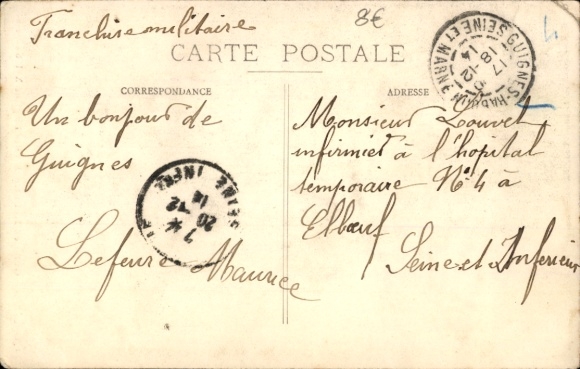 Franchise militaire
8€
CARTE POSTALE
CORRESPONDANCE
Un bonjour de
Guignes
Lefeuve Maurice
ADRESSE
Monsieur Louvet
infirmier à l'hopital
temporaire N° 4 à
Elbœuf
Seine et Inferieur
GUIGNES-RABUTIN SEINE ET MARNE
17
18-12
14
SEINE INFRE
7 *
20
12
14